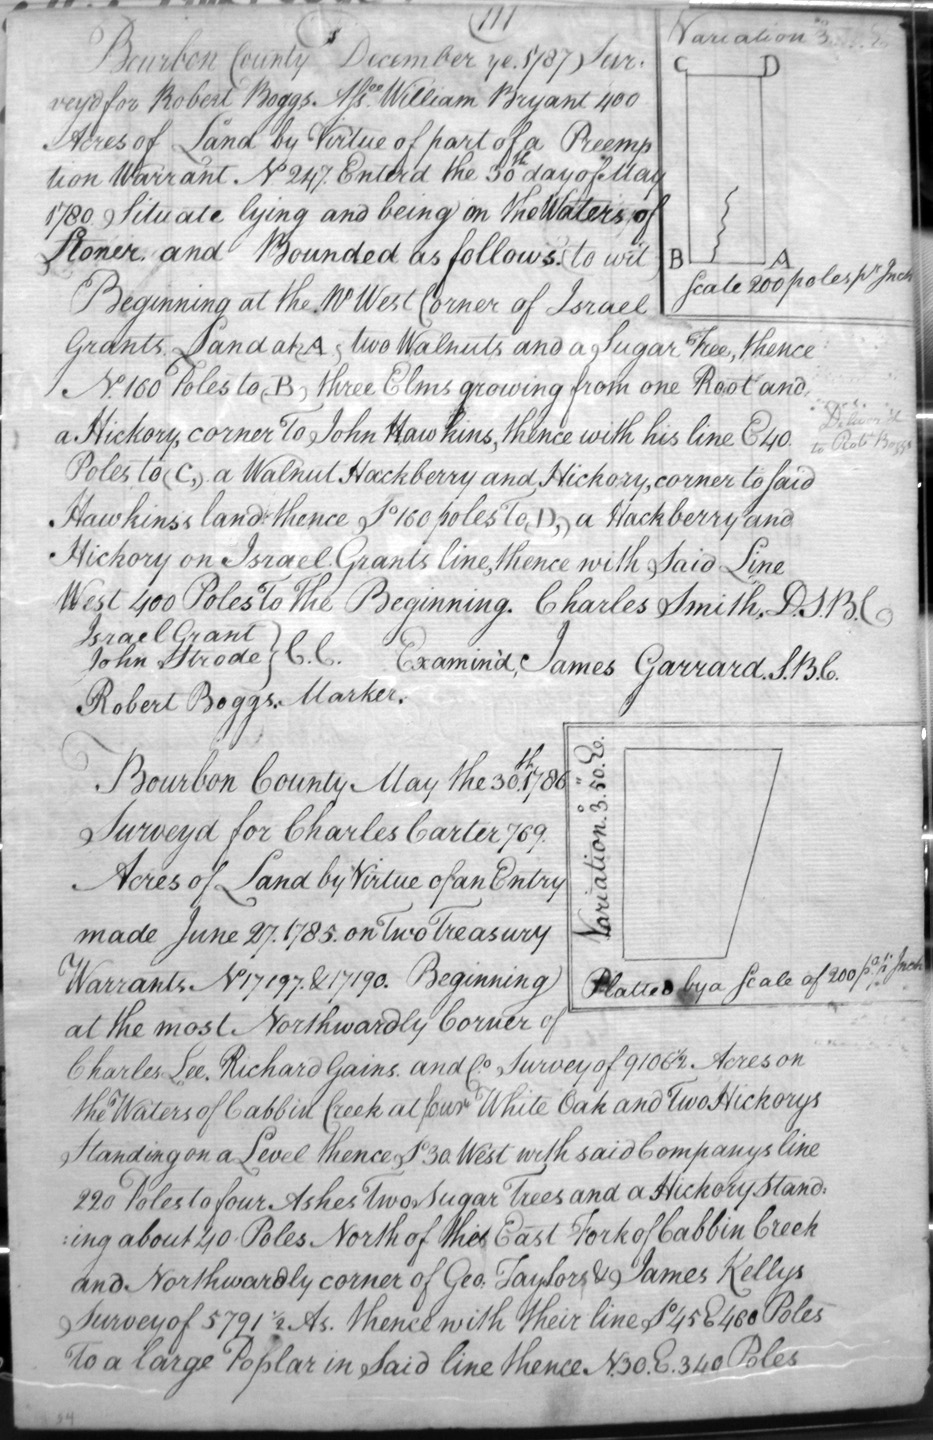 111
Variation 3
C D
B A
Scale 200 poles pr Inch
Bourbon County December ye. 5 1787 Sur:
veyd for Robert Boggs. Asseo. William Bryant 400
Acres of Land by Virtue of part of a Preemp
tion Warrant No 247. Enterd the 30th day of May
1780 Situate lying and being on the Waters of
Stoner. and Bounded as follows. to wit
Beginning at the No West Corner of Israel
Grants Land at A, two Walnuts and a Sugar Tree, thence
No. 160 Poles to (B) three Elms growing from one Root and
a Hickory corner To John Hawkins, thence with his line E 40.
Poles to (C,) a Walnut Hackberry and Hickory, corner to said
Hawkins's land thence So 160 poles To (D,) a Hackberry and
Hickory on Israel Grants line, thence with Said Line
West 400 Poles To the Beginning. Charles Smith, D.S.B.C
Deliver'd
to Robt Boggs
Israel Grant
John Strode } C.C. Examin'd, James Garrard. S.B.C.
Robert Boggs. Marker.
Bourbon County May the 30th 1786
Surveyd for Charles Carter 769.
Acres of Land by Virtue of an Entry
made June 27. 1785. on Two Treasury
Warrants No 17197. & 17190. Beginning
Variation. 3°.30". E.
Platted by a Scale of 200 po. pr. Inch
at the most Northwardly Corner of
Charles Lee, Richard Gains. and Co. Survey of 9106½ Acres on
the Waters of Cabbin Creek at four White Oak and Two Hickorys
Standing on a Level thence So 30. West with said Companys line
220 Poles to four Ashes Two Sugar Trees and a Hickory Stand:
:ing about 40 Poles North of the East Fork of Cabbin Creek
and Northwardly corner of Geo. Taylors & James Kellys
Survey of 5791 ½ As. thence with their line So 45 E 460 Poles
To a large Poplar in Said line thence N. 30. E. 340 Poles